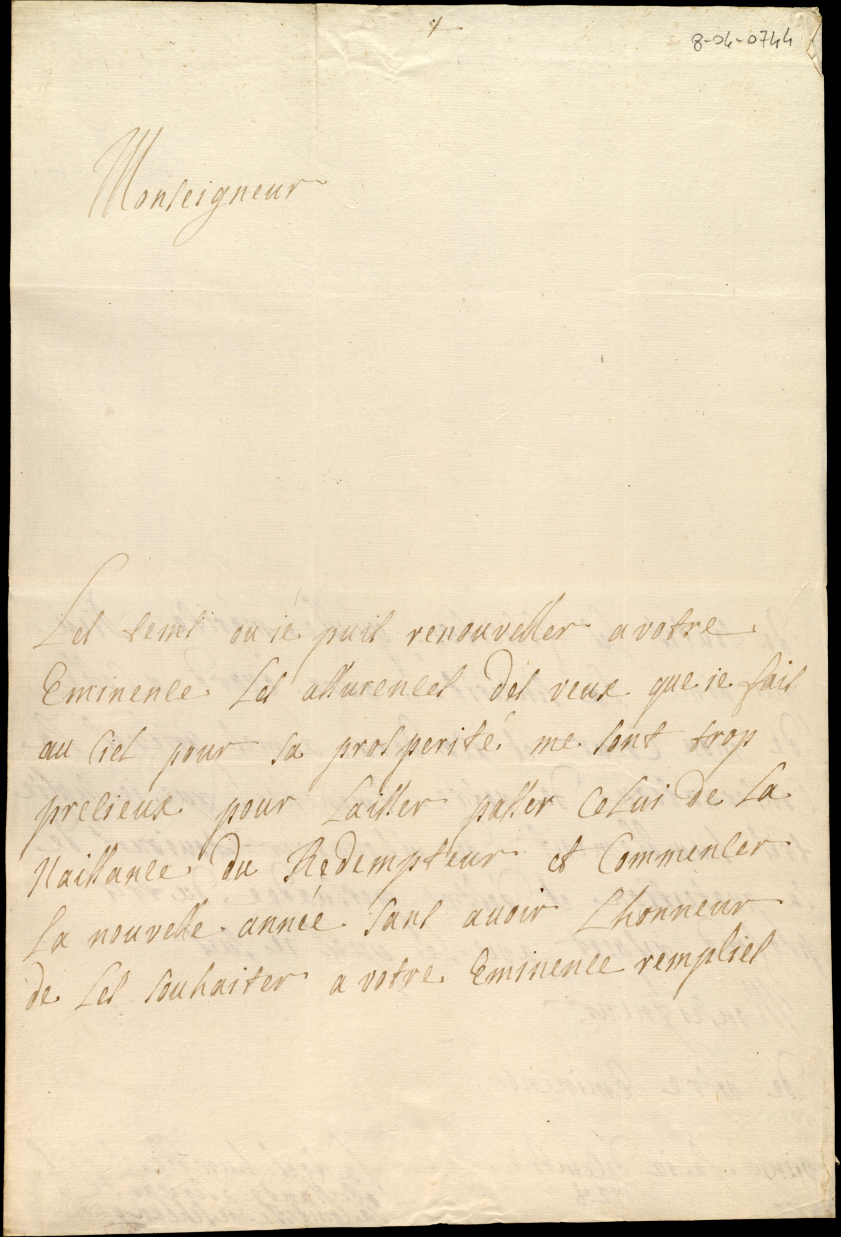 8-04-0744
Monseigneur
Les tems ou ie puis renouveller a votre
Eminence Les assurences des veux que ie fais
au Ciel pour sa prosperité me sont trop
precieux pour Laisser passer Celui de La
Naissance du Redempteur et Commencer
La nouvelle année sans avoir L'honneur
de Les souhaiter a votre Eminence remplies